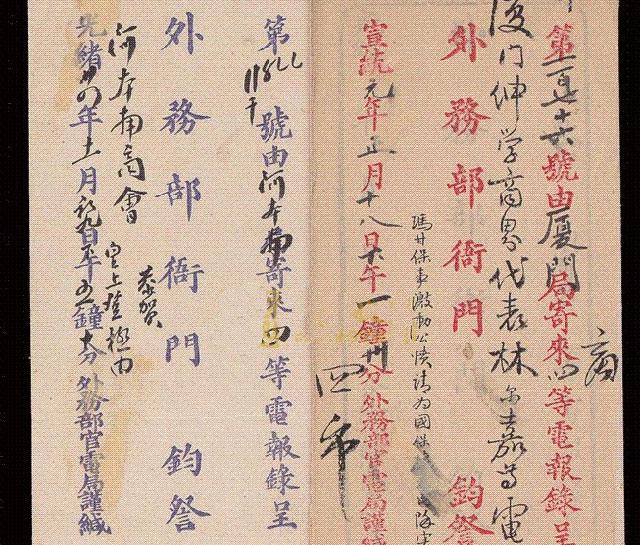 第一百七十六號由厦門局寄來四等電報錄呈
商
厦门绅学商界代表林尔嘉等電
外務部衙門 鈞詧
瑪甘保事激動公憤请为國保
宣統元年正月十八日下午一鐘卅分外務部官電局謹緘
四
第 號由河本 寄來四等電報錄呈
外務部衙門 鈞詧
恭贺
皇上登極由
河本 商會
光緒卅四年十一月初九日下午 鐘 分外務部官電局謹緘